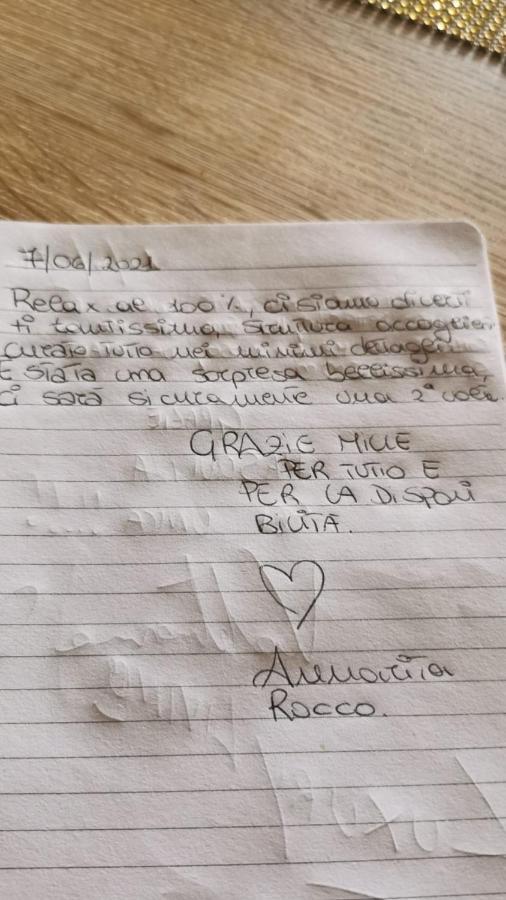 7/06/2021
Relax al 100%, ci siamo diverti
ti tantissimo, struttura accoglien
curato tutto nei minimi dettagli
È stata una sorpresa bellissima,
ci sarà sicuramente una 2ª volta.
GRAZIE MILLE
PER TUTTO E
PER LA DISPONI
BILITÀ.
Annarita
Rocco.